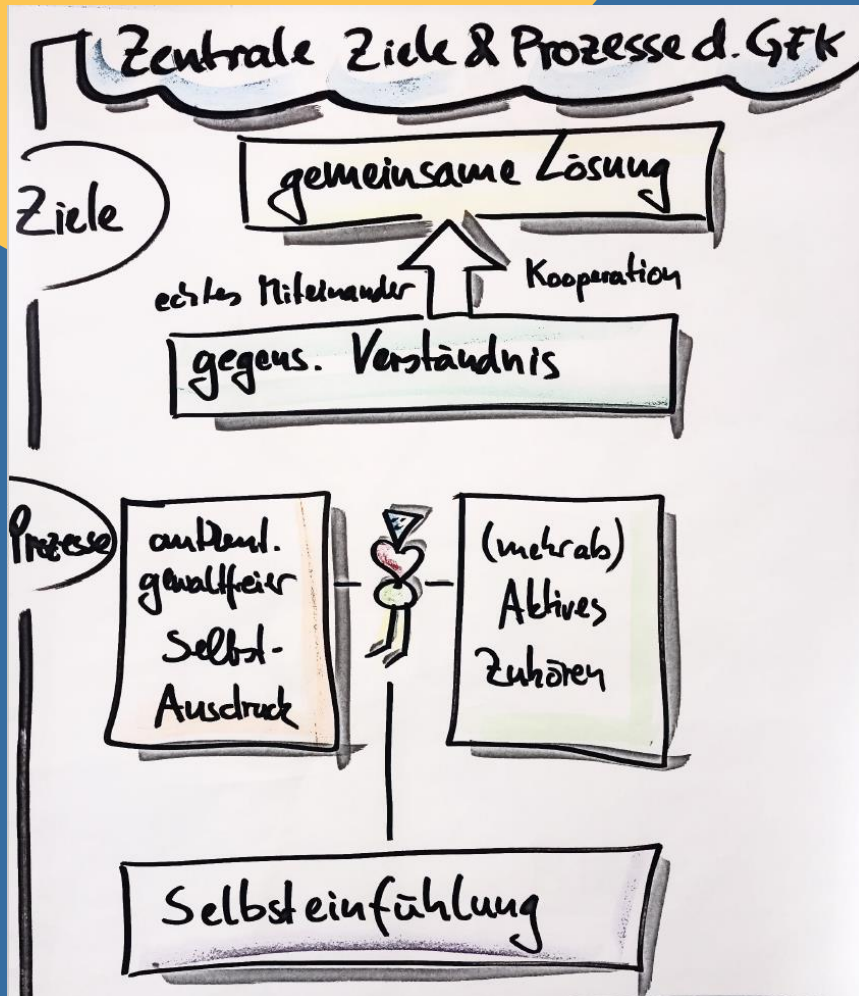 Zentrale Ziele & Prozesse d. GFK
Ziele
gemeinsame Lösung
echtes Miteinander
Kooperation
gegens. Verständnis
Prozesse
authent.
gewaltfreier
Selbst-
Ausdruck
(mehr als)
Aktives
Zuhören
Selbsteinfühlung